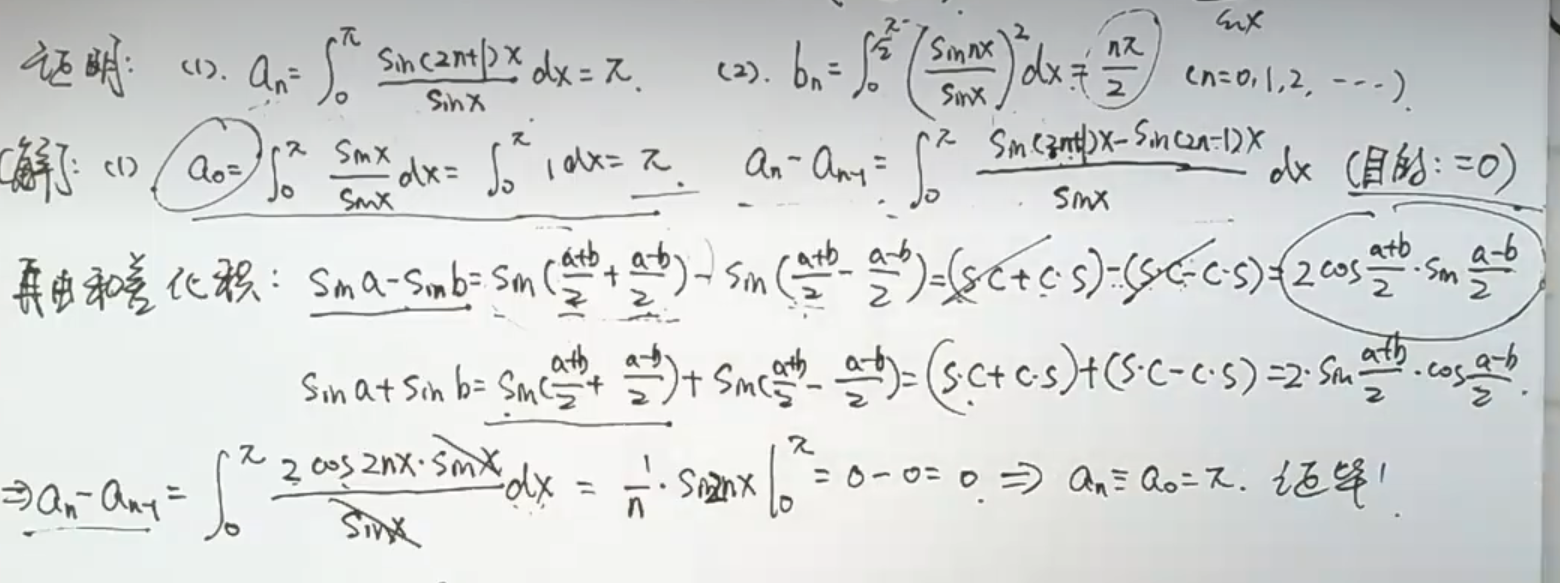 sinx
证明: (1). aₙ = ∫₀^π sin(2n+1)x / sinx dx = π. (2). bₙ = ∫₀^(π/2) (sin nx / sinx)² dx = nπ/2 (n=0,1,2, ----).
[解]: (1) a₀ = ∫₀^π sinx / sinx dx = ∫₀^π 1 dx = π. aₙ - aₙ₋₁ = ∫₀^π (sin(2n+1)x - sin(2n-1)x) / sinx dx (目的: =0)
再由和差化积: sin a - sin b = sin((a+b)/2 + (a-b)/2) - sin((a+b)/2 - (a-b)/2) = (s·c + c·s) - (s·c - c·s) = 2cos (a+b)/2 · sin (a-b)/2
sin a + sin b = sin((a+b)/2 + (a-b)/2) + sin((a+b)/2 - (a-b)/2) = (s·c + c·s) + (s·c - c·s) = 2·sin (a+b)/2 · cos (a-b)/2.
⇒ aₙ - aₙ₋₁ = ∫₀^π 2cos2nx·sinx / sinx dx = 1/n · sin2nx |₀^π = 0 - 0 = 0. ⇒ aₙ ≡ a₀ = π. 证毕!